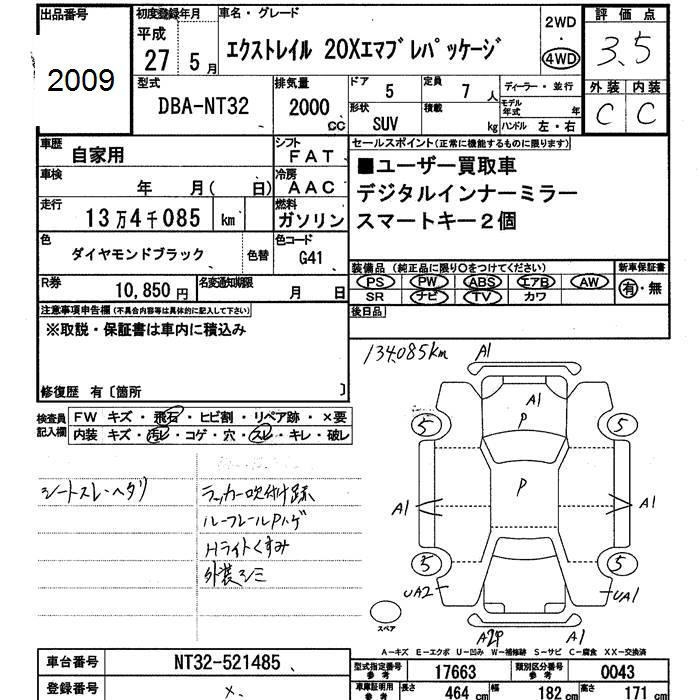 出品番号
2009
初度登録年月
平成
27年 5月
車名・グレード
エクストレイル 20Xエマブレパッケージ
2WD
・
4WD
評価点
3.5
外装 内装
C C
型式
DBA-NT32
排気量
2000
cc
ドア 5
定員 7人
ディーラー・並行
形状 SUV
積載 kg
モデル年式 年
ハンドル 左・右
車歴 自家用
シフト FAT
車検 年 月(日)
冷房 AAC
走行 13万4千085 km
燃料 ガソリン
色 ダイヤモンドブラック
色替
色コード G41
R券 10,850円
名変通知期限 月 日
セールスポイント(正常に機能するものに限ります)
■ユーザー買取車
デジタルインナーミラー
スマートキー2個
装備品(純正品に限り〇をつけてください)
PS PW ABS エアB AW
SR ナビ TV カワ
新車保証書
有・無
後日品
注意事項申告欄(不具合内容等は具体的に記入して下さい)
※取説・保証書は車内に積込み
修復歴 有〔箇所 〕
検査員記入欄
FW キズ・飛石・ヒビ割・リペア跡・×要
内装 キズ・汚レ・コゲ・穴・スレ・キレ・破レ
シートスレ・ヘタリ
ラッカー吹付け跡
ルーフレールPハゲ
Hライトくすみ
外装シミ
134,085km
A1
A1
P
5 5
P
A1 A1
5 5
UA2 UA1
A2P A1
スペア
A-キズ E-エクボ U-凹み W-補修跡 S-サビ C-腐食 XX-交換済
車台番号 NT32-521485
登録番号 ×
型式指定番号 参考 17663
類別区分番号 参考 0043
車庫証明用 参考 長さ 464 cm 幅 182 cm 高さ 171 cm